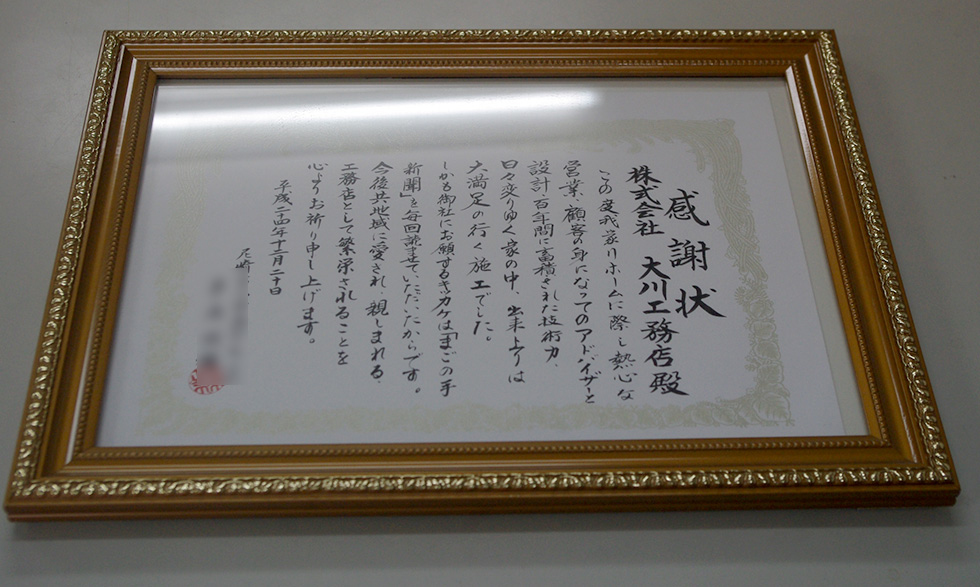 感謝状
株式会社 大川工務店殿
この度我家リホームに際し熱心な
営業、顧客の身になってのアドバイザーと
設計、百年間に蓄積された技術力、
日々変りゆく家の中、出来上りは
大満足の行く施工でした。
しかも御社にお願するキッカケは「まごの手
新聞」を毎回読ませていただいたからです。
今後共地域に愛され、親しまれる、
工務店として繁栄されることを
心よりお祈り申し上げます。
平成二十四年十二月二十日
尼崎